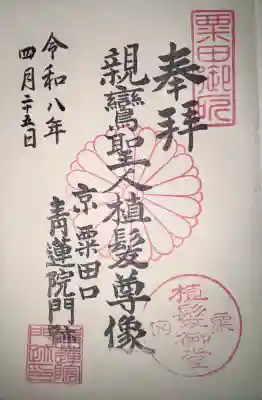 粟田御所
奉拝
親鸞聖人植髪尊像
京 粟田口
青蓮院門跡
令和八年
四月二十五日
植髪御堂
粟田
青蓮院門跡印